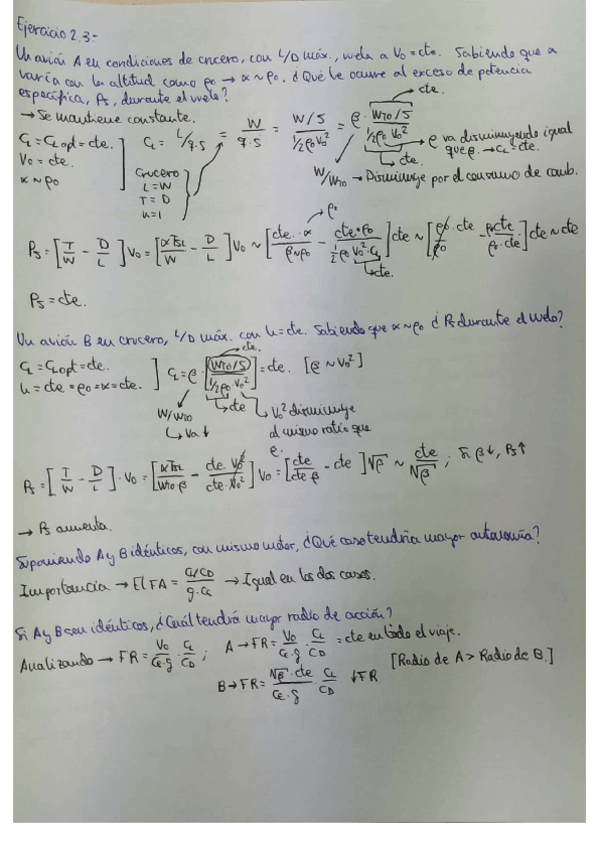 Ejercicio 2.3.-
Un avión A en condiciones de crucero, con L/D máx., vuela a V₀ = cte. Sabiendo que α
varía con la altitud como ρ₀ → α ~ ρ₀. ¿Qué le ocurre al exceso de potencia
específica, Ps, durante el vuelo?
→ Se mantiene constante.
cte.
C_L = C_Lopt = cte.
V₀ = cte.
α ~ ρ₀
Crucero
L = W
T = D
n = 1
C_L = L/q·S = W/q·S = (W/S)/(½ρ₀V₀²) = β · (W_TO/S)/(½ρ₀V₀²)
cte.
ρ va disminuyendo igual
que β. → C_L = cte.
W/W_TO → Disminuye por el consumo de comb.
Ps = [T/W - D/L] V₀ = [αT_SL/W - D/L] V₀ ~ [cte. · α/β~ρ₀ - cte · ρ₀/½ρ₀V₀²·C_L] cte ~ [ρ₀ · cte/ρ₀ - ρ₀cte/ρ₀·cte] cte ~ cte
ρ₀
cte.
Ps = cte.
Un avión B en crucero, L/D máx. con h = cte. Sabiendo que α ~ ρ₀ ¿Ps durante el vuelo?
cte.
C_L = C_Lopt = cte.
h = cte = ρ₀ = α = cte.
C_L = β · [(W_TO/S)/(½ρ₀·V₀²)] = cte. [β ~ V₀²]
cte
W/W_TO
↳ Va ↓
V₀² disminuye
al mismo ratio que
β.
Ps = [T/W - D/L] · V₀ = [αT_SL/W_TO β - cte. V₀²/cte·V₀²] V₀ = [cte/cte β - cte] √β ~ cte/√β ; Si β↓, Ps↑
→ Ps aumenta.
Suponiendo A y B idénticos, con mismo motor, ¿Qué caso tendría mayor autonomía?
Importancia → El FA = (C_L/C_D)/(g·C_E) → Igual en los dos casos.
Si A y B son idénticos, ¿Cuál tendrá mayor radio de acción?
Analizando → FR = V₀/C_E·g · C_L/C_D ; A → FR = V₀/C_E·g · C_L/C_D = cte en todo el viaje.
B → FR = √β·cte/C_E·g · C_L/C_D ↓FR [Radio de A > Radio de B.]